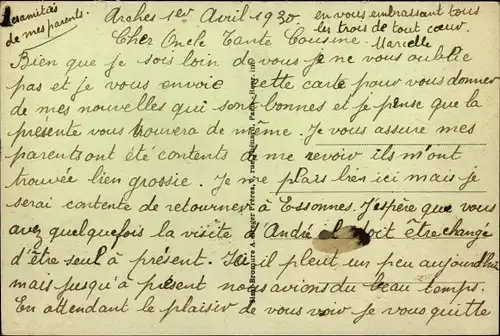 les amitiés
de mes parents.
Arches 1er Avril 1930
en vous embrassant tous
les trois de tout cœur.
Marcelle
Cher Oncle Tante Cousine
Bien que je sois loin de vous je ne vous oublie
pas et je vous envoie cette carte pour vous donner
de mes nouvelles qui sont bonnes et je pense que la
présente vous trouvera de même. Je vous assure mes
parents ont été contents de me revoir ils m'ont
trouvée bien grossie. Je me plais bien ici mais je
serai contente de retourner à Essonnes. J'espère que vous
avez quelquefois la visite de André il doit être change
d'être seul à présent. Ici il pleut un peu aujourd'hui
mais jusqu'à présent nous avions du beau temps.
En attendant le plaisir de vous voir je vous quitte